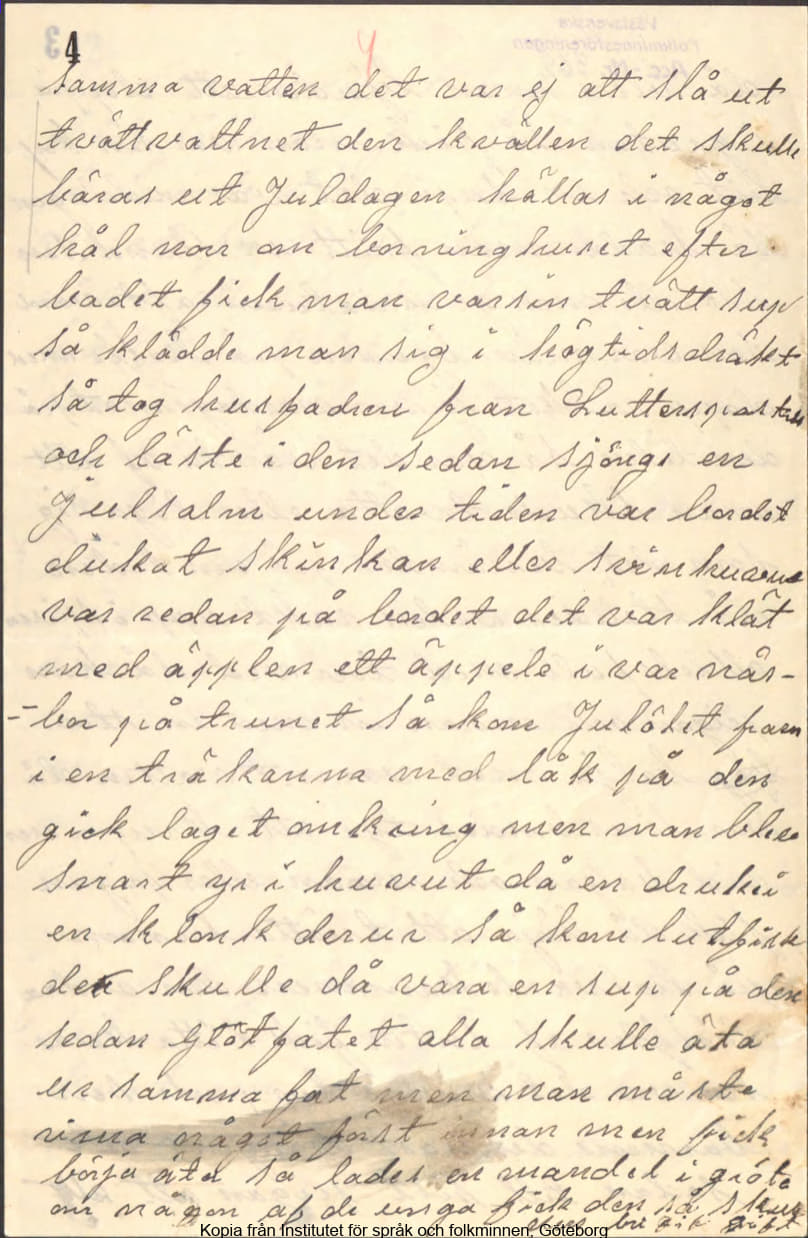 4
4
samma vatten det var ej att slå ut
tvättvattnet den kvällen det skulle
bäras ut Juldagen hällas i något
hål norr om boninghuset efter
badet fick man varsin tvätt sup
så klädde man sig i högtidsdräkt
så tog husfadren fran Lutterspostill
och läste i den sedan sjöngs en
Julsalm under tiden var bordet
dukat skinkan eller svinhuvue
var redan på bordet det var klät
med äpplen ett äppele i var näs-
-bor på trunet så kom Julölet fram
i en träkanna med låk på den
gick laget omkring men man blev
snart yr i huvut då en druki
en klonk derur så kom lutfisk
det skulle då vara en sup på den
sedan Grötfatet alla skulle äta
ur samma fat men man måste
rima något först innan men fick
börja äta så lades en mandel i gröte
om någon af de unga fick den så skulle
Kopia från Institutet för språk och folkminnen, Göteborg